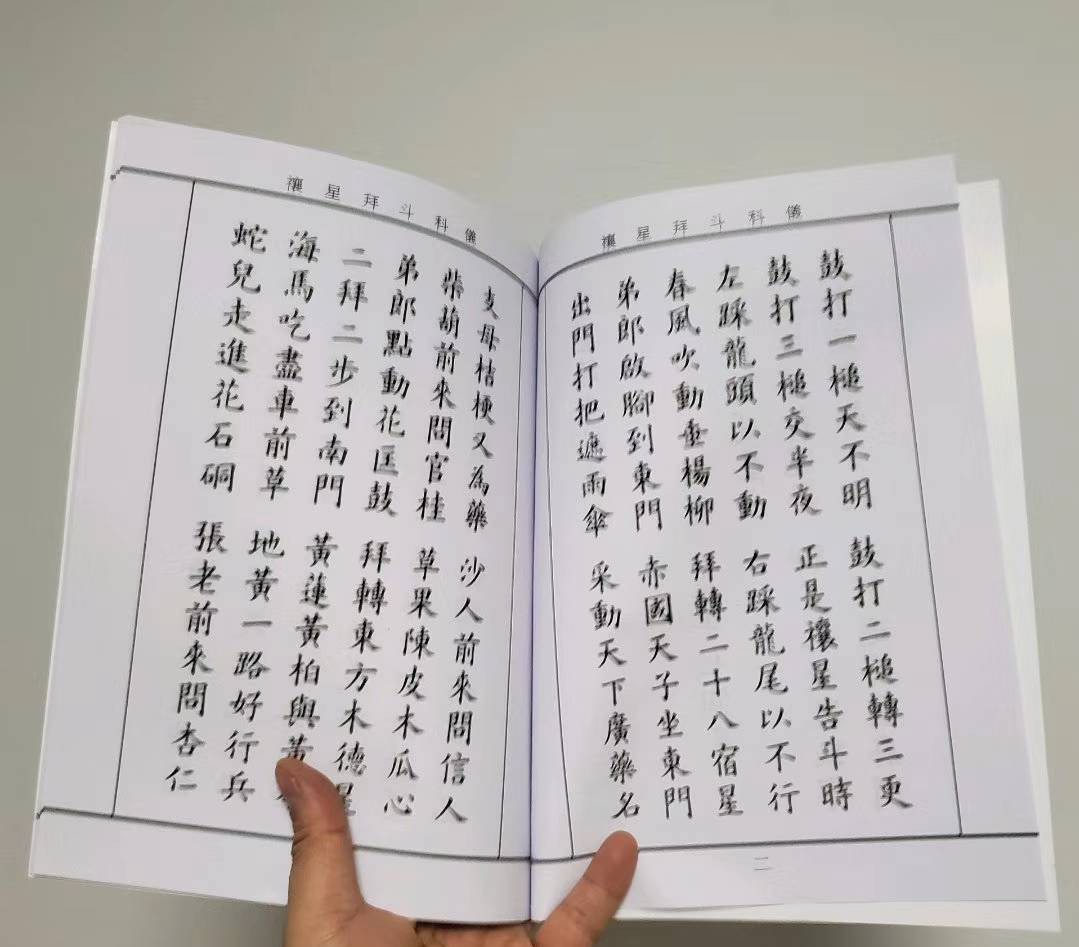 禳星拜斗科儀
鼓打一槌天不明 鼓打二槌轉三更
鼓打三槌交半夜 正是禳星告斗時
左踩龍頭以不動 右踩龍尾以不行
春風吹動垂楊柳 拜轉二十八宿星
弟郎啟腳到東門 赤國天子坐東門
出門打把遮雨傘 采動天下廣藥名
二
禳星拜斗科儀
支母桔梗又為藥 沙人前來問信人
柴葫前來問官桂 草果陳皮木瓜心
弟郎點動花匡鼓 拜轉東方木德星
二拜二步到南門 黃蓮黃柏與黃
海馬吃盡車前草 地黃一路好行兵
蛇兒走進花石硐 張老前來問杏仁